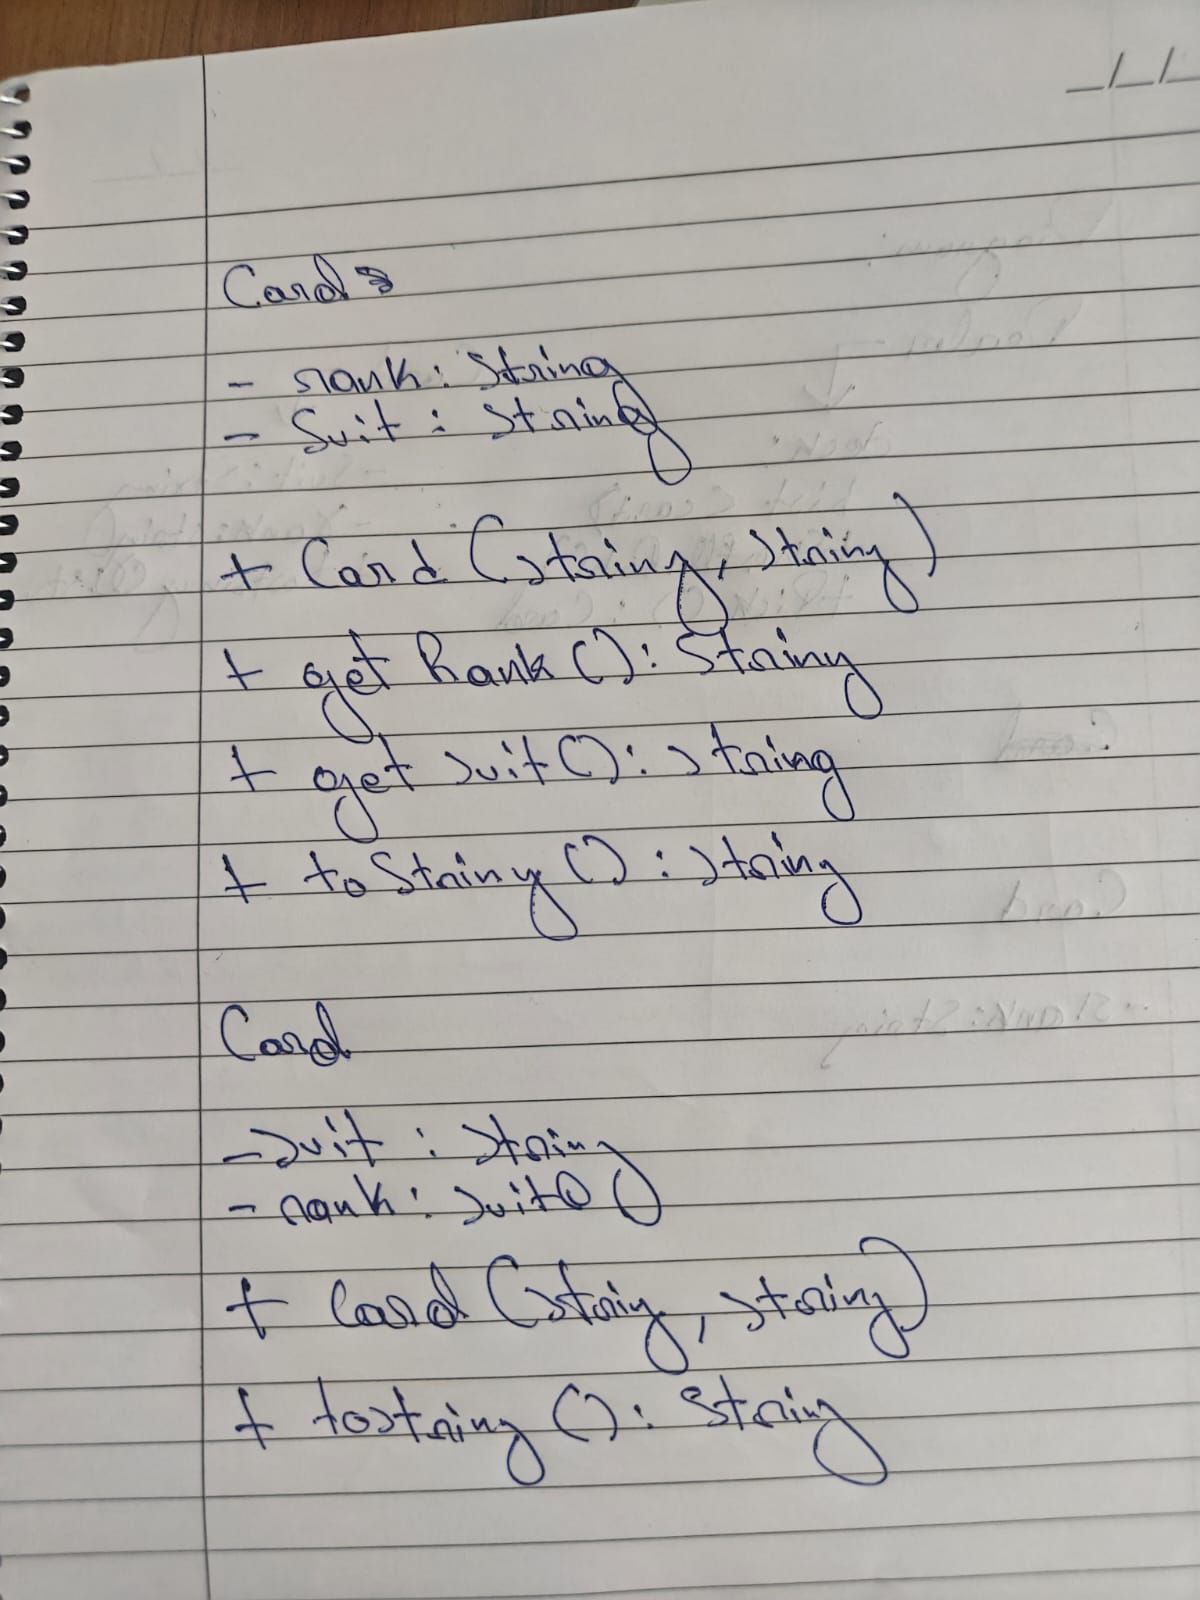 Card
- rank: String
- Suit : String
+ Card (String, String)
+ get Rank () : String
+ get Suit () : String
+ toString () : String
Card
- Suit : String
- rank : Suit
+ Card (String, String)
+ toString () : String